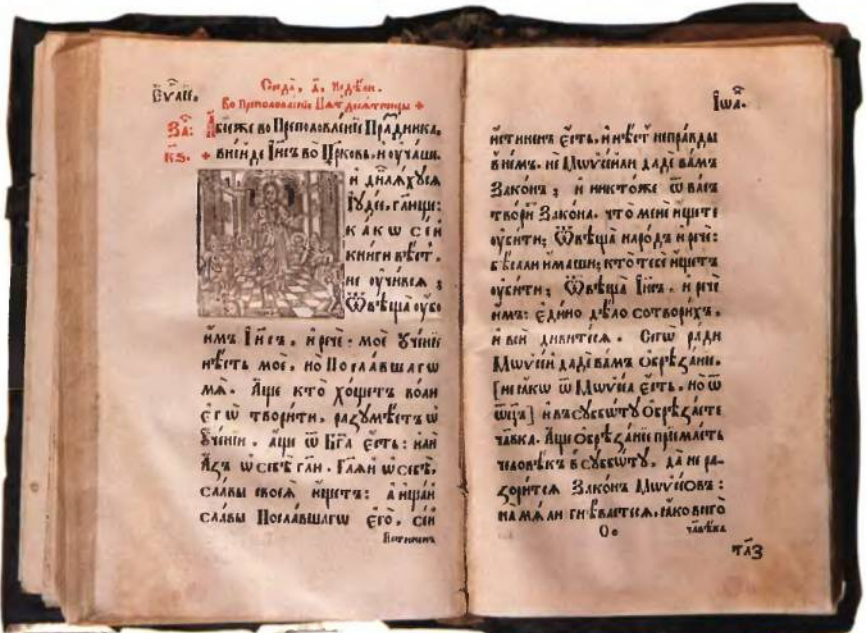 Еѵ҃лїе.
Среда̀, д҃, недѣ́ли.
Во Преполове́нїе Пѧт̾деся́тницы
За҃:
А҆́бїеже во Преполовле́нїе Пра́здника,
к҃ѕ.
вни́йде І҆и҃съ во̀ Цр҃ковь, и҆ оу҆ча́ше.
И҆ ди́влѧхусѧ
І҆уде́е, гл҃юще:
ка́кѡ се́й
кни́ги вѣ́ст̾,
не оу҆чи́всѧ;
Ѿвѣща̀ оу҆́бо
и҆̀мъ І҆и҃съ, и҆ речѐ: моѐ Оу҆че́нїе
нѣ́сть моѐ, но̀ Посла́вшагѡ
мѧ̀. А҆́ще кто̀ хо́щетъ во́лю
є҆гѡ̀ твори́ти, разꙋмѣ́етъ ѡ҆
Оу҆че́нїи, а҆́ще ѿ Бг҃а є҆́сть: и҆лѝ
А҆́зъ ѡ҆ себѣ̀ гл҃ю. Гл҃ѧй ѡ҆ себѣ̀,
сла́вы своеѧ̀ и҆́щетъ: а҆ и҆ща́й
сла́вы Посла́вшагѡ є҆гѡ̀, се́й
И҆́стиненъ
І҆ѡа҃.
и҆́стиненъ є҆́сть, и҆ нѣ́ст̾ непра́вды
в̾ не́мъ. не Мѡѷсе́йли дадѐ ва́мъ
Зако́нъ; и҆ никто́же ѿ ва́съ
твори́тъ Зако́на. что̀ менѐ и҆́щете
оу҆би́ти; Ѿвѣща̀ наро́дъ и҆ речѐ:
бѣ́са ли и҆́маши; кто̀ тебѐ и҆́щетъ
оу҆би́ти; Ѿвѣща̀ І҆и҃съ, и҆ речѐ
и҆̀мъ: є҆ди́но дѣ́ло сотвори́хъ,
и҆ вси̑ дивите́сѧ. Сегѡ̀ ра́ди
Мѡѷсе́й дадѐ ва́мъ Ѻ҆брѣ́заніе,
[не ꙗ҆́кѡ ѿ Мѡѷсе́а є҆́сть, но̀ ѿ
ѻ҆те́цъ] и҆ в̾ суббѡ́ту ѻ҆брѣ́заете
чл҃вѣка. А҆́ще ѻ҆брѣ́заніе прїе́млетъ
человѣ́къ в̾ суббѡ́ту, да̀ не ра-
зори́тсѧ Зако́нъ Мѡѷсе́овъ:
на̀ мѧ̀ ли гнѣ́ваетесѧ, ꙗ҆́ко всего̀
Оо
чл҃вѣка
тл҃з